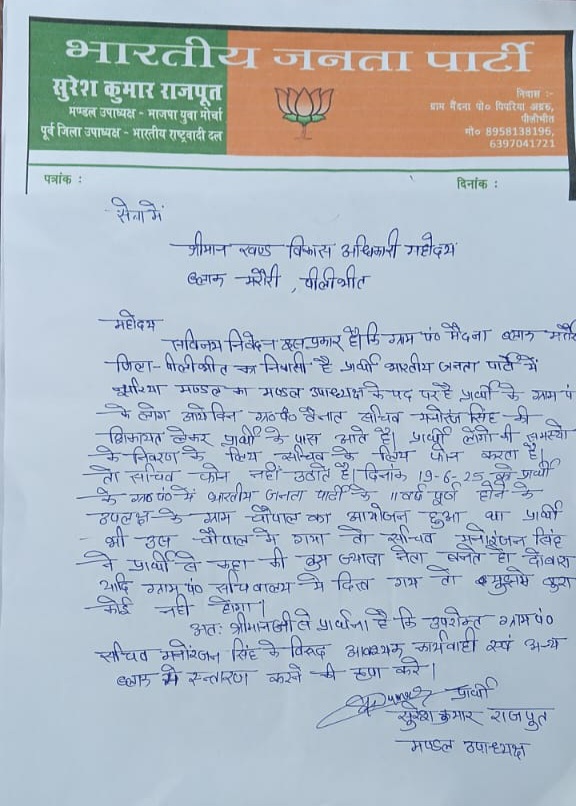 भारतीय जनता पार्टी
सुरेश कुमार राजपूत
मण्डल उपाध्यक्ष - भाजपा युवा मोर्चा
पूर्व जिला उपाध्यक्ष - भारतीय राष्ट्रवादी दल
निवास :-
ग्राम मैदना पो० पिपरिया अगरु,
पीलीभीत
मो० 8958138196,
6397041721
पत्रांक :
दिनांक :
सेवा में
श्रीमान खण्ड विकास अधिकारी महोदय
ब्लाक मरौरी , पीलीभीत
महोदय
सविनय निवेदन इस प्रकार है कि ग्राम पं० मैदना ब्लाक
जिला-पीलीभीत का निवासी है प्रार्थी भारतीय जनता पार्टी में
मण्डल का मण्डल उपाध्यक्ष के पद पर है प्रार्थी के ग्राम पं
के लोग आये दिन ग्रा०पं० तैनात सचिव मनोरंजन सिंह की
शिकायत लेकर प्रार्थी के पास आते है। प्रार्थी लोगो की समस्यो
के निवरण के लिय सचिव के लिय फोन करता है।
तो सचिव फोन नहीं उठाते है। दिनांक 19-6-25 को प्रार्थी
के ग्रा०पं० में भारतीय जनता पार्टी के 11 वर्ष पूर्ण होने के
उपलक्ष के ग्राम चौपाल का आयोजन हुआ था प्रार्थी
भी उस चौपाल मे गया तो सचिव मनोरंजन सिंह
ने प्रार्थी से कहा की तुम ज्यादा नेता बनते हो दोवारा
यदि ग्राम पं० सचिवालय मे दिख गये तो मुझसे बुरा
कोई नही होगा।
अतः श्रीमानजी से प्रार्थना है कि उपरोक्त ग्राम पं०
सचिव मनोरंजन सिंह के विरूद्ध आवश्यक कार्यवाही एवं अन्य
ब्लाक मे स्नतारण करने की कृपा करे।
प्रार्थी
सुरेश कुमार राजपुत
मण्डल उपाध्यक्ष